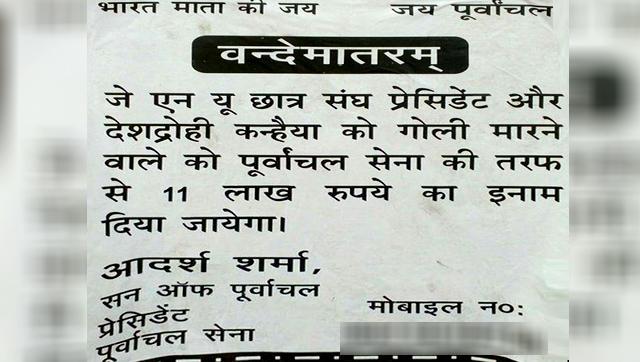 भारत माता की जय जय पूर्वांचल
वन्देमातरम्
जे एन यू छात्र संघ प्रेसिडेंट और
देशद्रोही कन्हैया को गोली मारने
वाले को पूर्वांचल सेना की तरफ
से 11 लाख रुपये का इनाम
दिया जायेगा।
आदर्श शर्मा,
सन ऑफ पूर्वाचल
प्रेसिडेंट
पूर्वाचल सेना
मोबाइल न०: